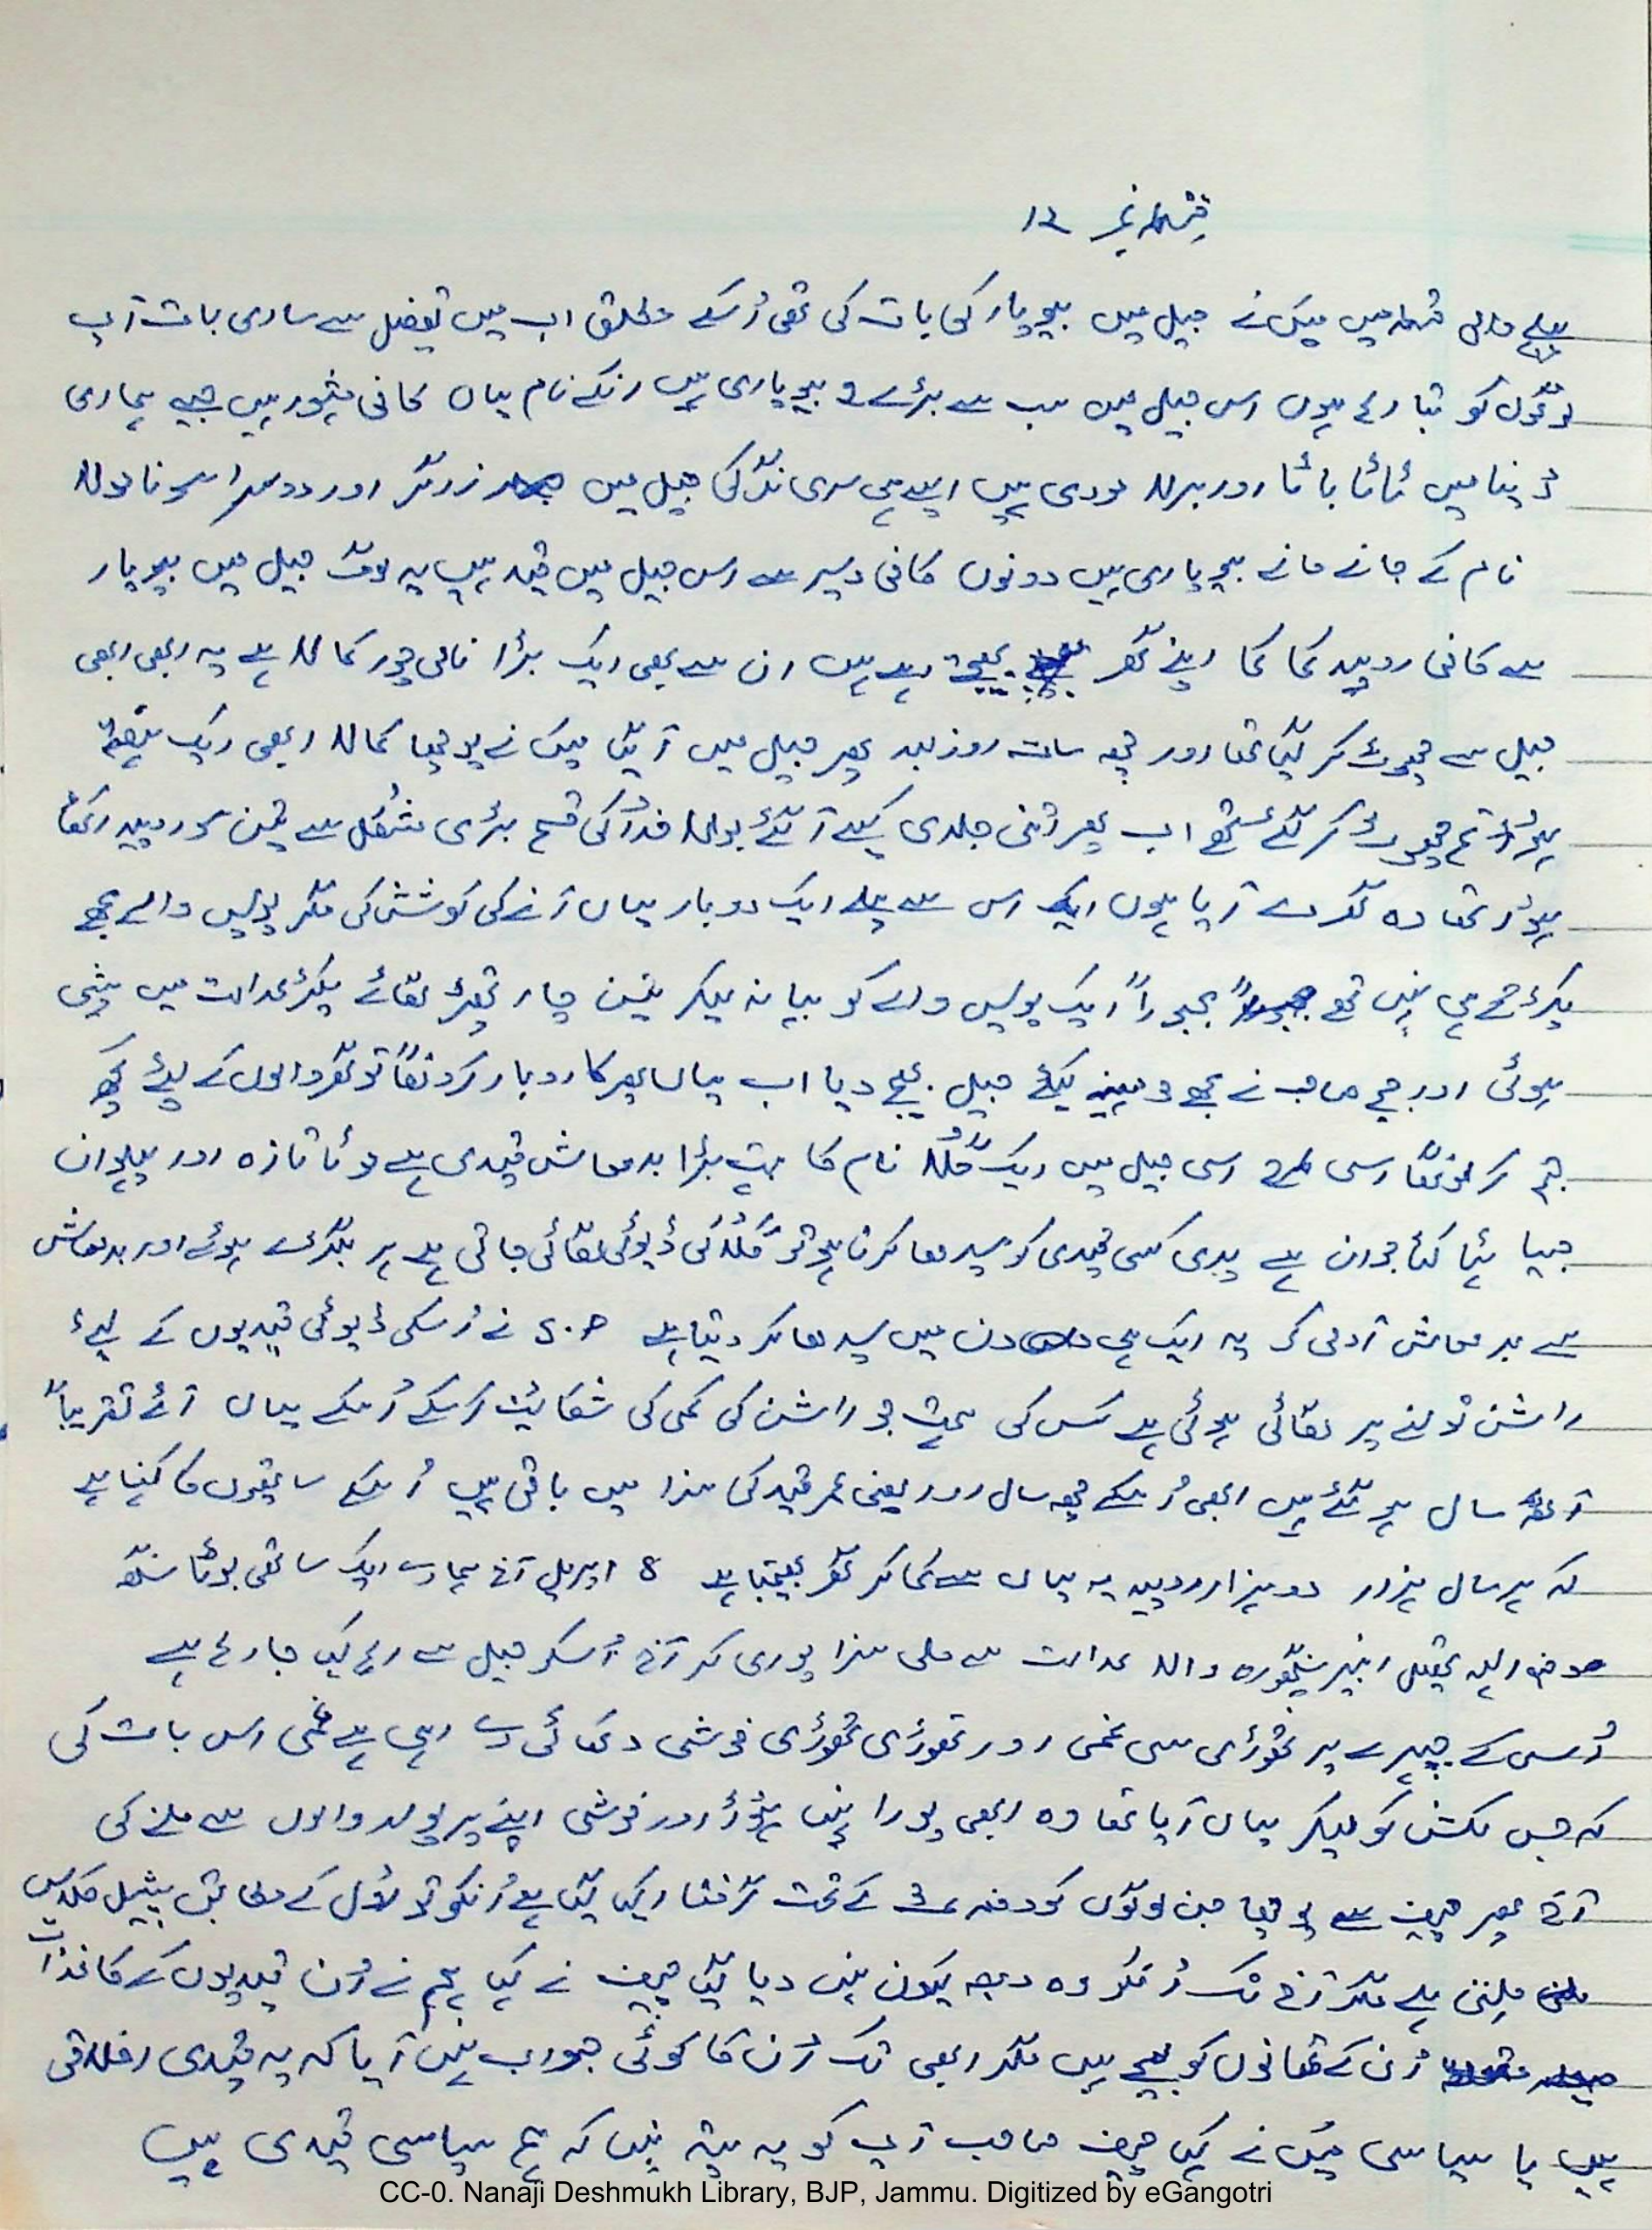 قسط نمبر ۱۲
پہلے والی قسط میں میں نے جیل میں بیوپار کی بات کی تھی اُسکے متعلق اب میں تفصیل سے ساری بات آپ
لوگوں کو بتا رہا ہوں اس جیل میں سب سے بڑے 2 بیوپاری ہیں انکے نام یہاں کافی مشہور ہیں جیسے ہماری
دُنیا میں ٹاٹا باٹا اور برلا مودی ہیں ایسے ہی سری نگر کی جیل میں زرگر اور دوسرا سونا
نام کے جانے مانے بیوپاری ہیں دونوں کافی دیر سے اس جیل میں قید ہیں یہ لوگ جیل میں بیوپار
سے کافی روپیہ کما کما اپنے گھر بھیجتے رہے ہیں ان سے بھی ایک بڑا نامی چور کمالا ہے یہ ابھی ابھی
جیل سے چھوٹ کر گیا تھا اور چھ سات روز بعد پھر جیل میں آ گیا میں نے پوچھا کمالا ابھی ایک ہفتہ
ہُوا تم چھوٹ کر گئے تھے اب پھر اتنی جلدی کیسے آ گئے بولا خُدا کی قسم بڑی مشکل سے تین سو روپیہ اکٹھا
ہُوا تھا وہ گھر دے آیا ہوں اس سے پہلے ایک دو بار یہاں آنے کی کوشش کی مگر پولیس والے مجھے
پکڑتے ہی نہیں تھے مجبوراً ایک پولیس والے کو بہانہ لیکر تین چار تھپڑ لگائے پکڑ عدالت میں پیشی
ہوئی اور جج صاحب نے مجھے 3 مہینے کیلئے جیل بھیج دیا اب یہاں پھر کاروبار کرونگا تو گھر والوں کے لیئے کچھ
جمع کر لونگا اسی طرح اسی جیل میں ایک گُلا نام کا بہت بڑا بدمعاش قیدی ہے موٹا تازہ اور پہلوان
جیسا ہٹا کٹا جوان ہے پوری کسی قیدی کو سیدھا کرنا ہو تو گُلا کی ڈیوٹی لگائی جاتی ہے ہر بگڑے ہوئے اور بدمعاش
سے بدمعاش آدمی کو یہ ایک ہی دن میں سیدھا کر دیتا ہے S.P نے اُسکی ڈیوٹی قیدیوں کے لیئے
راشن تولنے پر لگائی ہوئی ہے کس کی ہمت جو راشن کی کمی کی شکائیت کر سکے اُسکے یہاں آئے تقریباً
آٹھ سال ہو گئے ہیں ابھی اُسکے چھ سال اور یعنی عمر قید کی سزا میں باقی ہیں اُسکے ساتھیوں کا کہنا ہے
کہ ہر سال ہزار دو ہزار روپیہ یہ یہاں سے کما کر گھر بھیجتا ہے 8 اپریل آج ہمارے ایک ساتھی بوٹا سنگھ
تحصیل رنبیر سنگھپورہ والا عدالت سے ملی سزا پوری کر آج اُسکو جیل سے رہا کیا جا رہا ہے
اُس کے چہرے پر تھوڑی سی غمی اور تھوڑی تھوڑی خوشی دکھائی دے رہی ہے غمی اس بات کی
کہ جس مکش کو لیکر یہاں آیا تھا وہ ابھی پورا نہیں ہُوا اور خوشی اپنے پریوار والوں سے ملنے کی
آج پھر چیف سے پوچھا جن لوگوں کو دفعہ 3 کے تحت گرفتار کیا گیا ہے اُنکو تو رول کے مطابق سپیشل کلاس
ملنی ہے مگر آج تک اُنکو وہ درجہ کیوں نہیں دیا گیا چیف نے کہا ہم نے اُن قیدیوں کے کاغذات
اُن کے تھانوں کو بھیجے ہیں مگر ابھی تک اُن کا کوئی جواب نہیں آیا کہ یہ قیدی اخلاقی
ہیں یا سیاسی میں نے کہا چیف صاحب آپ کو یہ پتہ نہیں کہ ہم سیاسی قیدی ہیں
CC-0. Nanaji Deshmukh Library, BJP, Jammu. Digitized by eGangotri